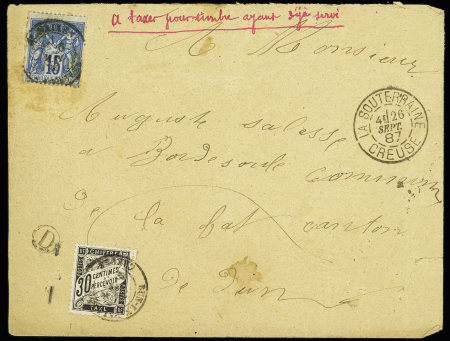 A taxer pour timbre ayant déjà servi
15
A Monsieur
Auguste salesse
a Bordesoule commune
de la fat canton
de Dun
LA SOUTERRAINE
4E 26
SEPT.
87
CREUSE
D
CHIFFRE
30 CENTIMES
A PERCEVOIR
TAXE